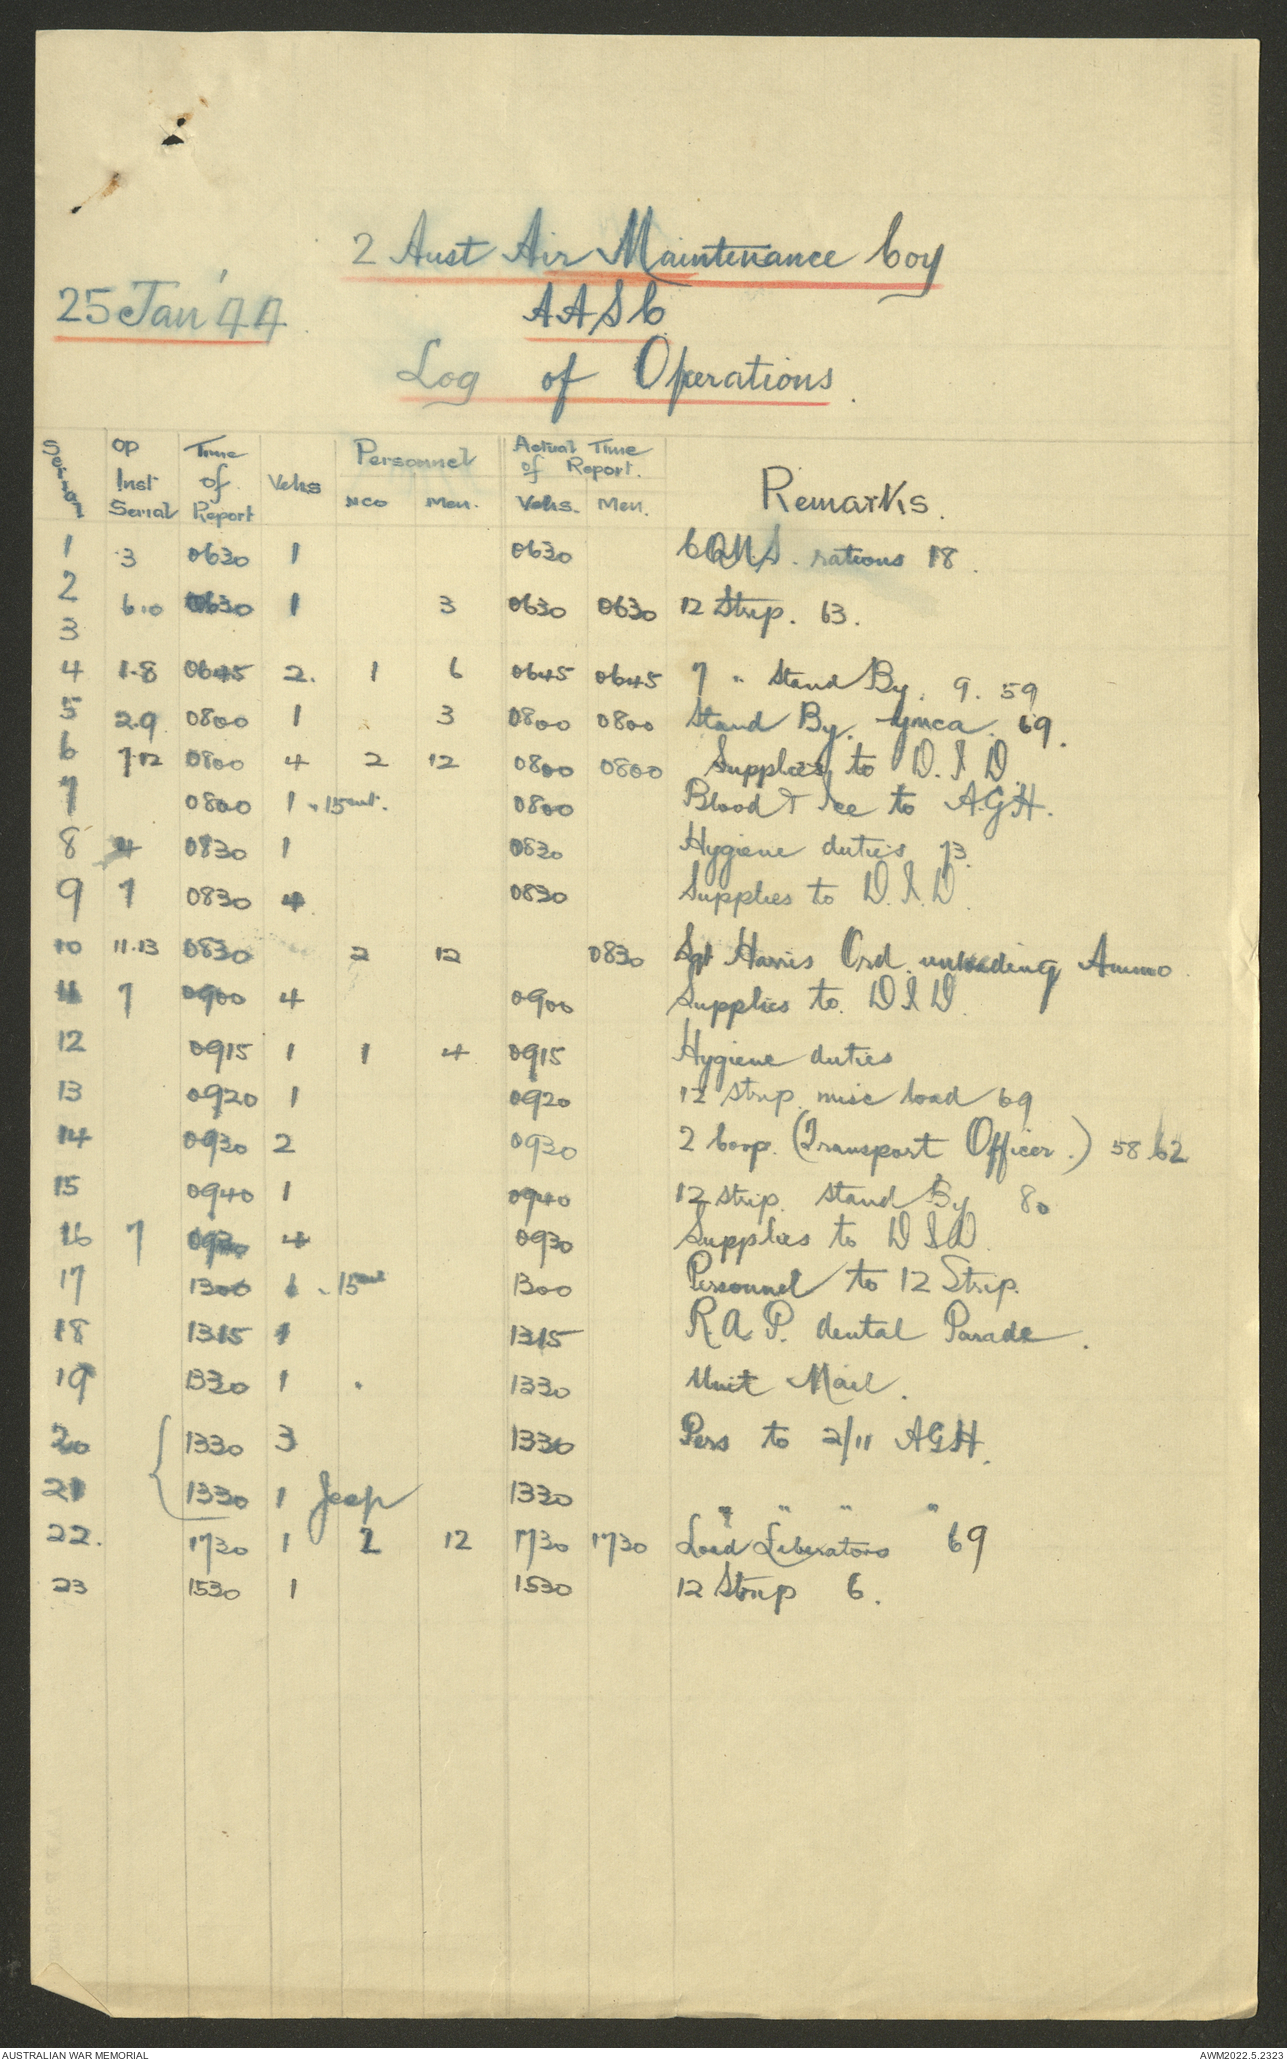 2 Aust Air Maintenance Coy
25 Jan '44 AASC
Log of Operations.
Serial Op Inst Serial Time of Report Vehs Personnel NCO Men. Actual Time of Report. Vehs. Men. Remarks.
1 3 0630 1 0630 CQMS. rations 18.
2 6.10 0630 1 3 0630 0630 12 Strip. 63.
3
4 1.8 0645 2. 1 6 0645 0645 7 " Stand By. 9. 59
5 2.9 0800 1 3 0800 0800 Stand By. Ymca. 69.
6 7.12 0800 4 2 12 0800 0800 Supplies to D.I.D.
7 0800 1 15cwt. 0800 Blood & Ice to A.G.H.
8 4 0830 1 0830 Hygiene duties 73.
9 7 0830 4 0830 Supplies to D.I.D.
10 11.13 0830 2 12 0830 Sgt Harris Ord. unloading Ammo
11 7 0900 4 0900 Supplies to. D I D.
12 0915 1 1 4 0915 Hygiene duties
13 0920 1 0920 12 Strip. misc load 69
14 0930 2 0930 2 Corp. (Transport Officer.) 58 62
15 0940 1 0940 12 strip. stand By 80
16 7 0930 4 0930 Supplies to D I D.
17 1300 1 15cwt 1300 Personnel to 12 Strip.
18 1315 1 1315 R.A.P. dental Parade.
19 1330 1 1330 Unit Mail.
20 1330 3 1330 Pers to 2/11 AGH.
21 1330 1 Jeep 1330 " " " "
22. 1730 1 2 12 1730 1730 Load Liberators 69
23 1530 1 1530 12 Strip 6.
AUSTRALIAN WAR MEMORIAL AWM2022.5.2323